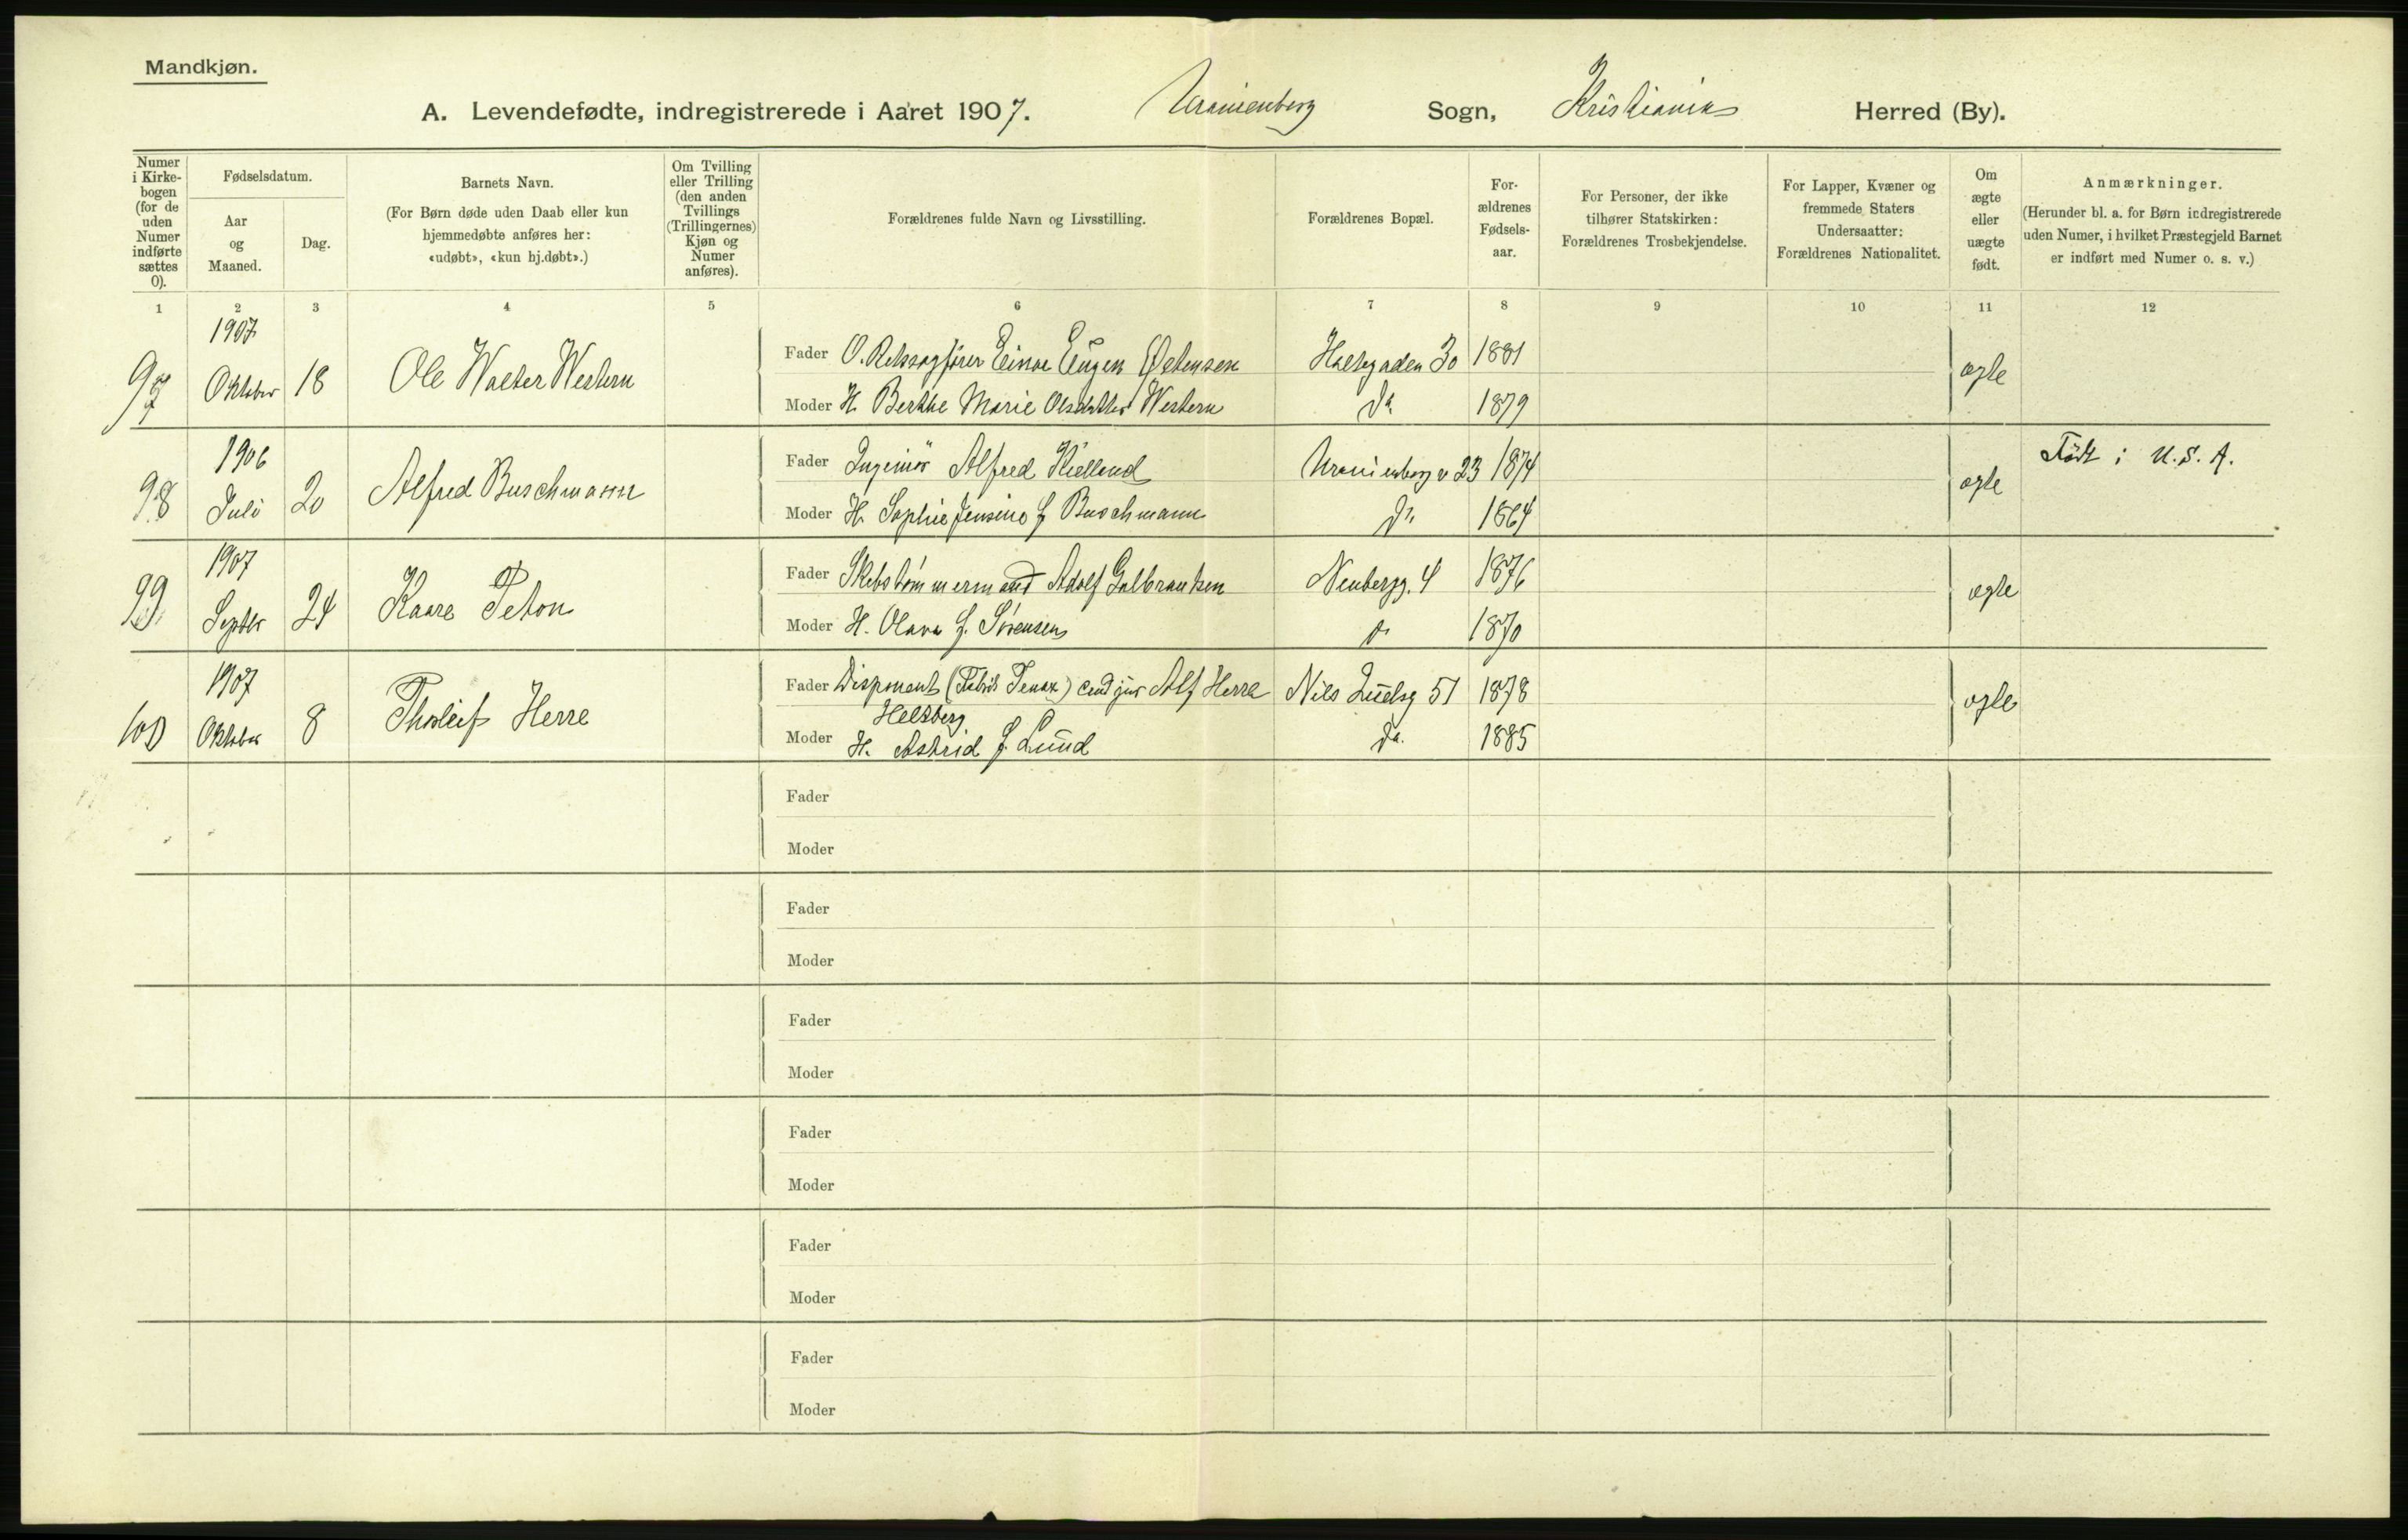 Mandkjøn.
A. Levendefødte, indregistrerede i Aaret 1907. Uranienborg Sogn, Kristiania Herred (By).
Numer i Kirkebogen (for de uden Numer indførte sættes 0).
Fødselsdatum.
Aar og Maaned.
Dag.
Barnets Navn.
(For Børn døde uden Daab eller kun hjemmedøbte anføres her: «udøbt», «kun hj.døbt».)
Om Tvilling eller Trilling (den anden Tvillings (Trillingernes) Kjøn og Numer anføres).
Forældrenes fulde Navn og Livsstilling.
Forældrenes Bopæl.
Forældrenes Fødselsaar.
For Personer, der ikke tilhører Statskirken: Forældrenes Trosbekjendelse.
For Lapper, Kvæner og fremmede Staters Undersaatter: Forældrenes Nationalitet.
Om ægte eller uægte født.
Anmærkninger.
(Herunder bl. a. for Børn indregistrerede uden Numer, i hvilket Præstegjeld Barnet er indført med Numer o. s. v.)
1 2 3 4 5 6 7 8 9 10 11 12
1907
97 Oktober 18 Ole Walter Western
Fader O. Retssagfører Einar Eugen Østensen Holtegaden 30 1881 ægte
Moder H. Berthe Marie Olsdatter Western do 1879
1906
98 Juli 20 Alfred Buschmann
Fader Ingeniør Alfred Kielland Uranienborg v 23 1874 ægte Født i U.S.A.
Moder H. Sophie Jensine f Buschmann do 1864
1907
99 Septbr 24 Kaare Peton
Fader Skibstømmermand Adolf Gulbrantsen Neubergg. 4 1876 ægte
Moder H. Olava f. Sørensen do 1870
1907
100 Oktober 8 Thorleif Herre
Fader Disponent (Fabrik Tenax) cand jur Alf Herre Nils Juelsg 51 1878 ægte
Helsberg
Moder H. Astrid f Lund do. 1885
Fader
Moder
Fader
Moder
Fader
Moder
Fader
Moder
Fader
Moder
Fader
Moder